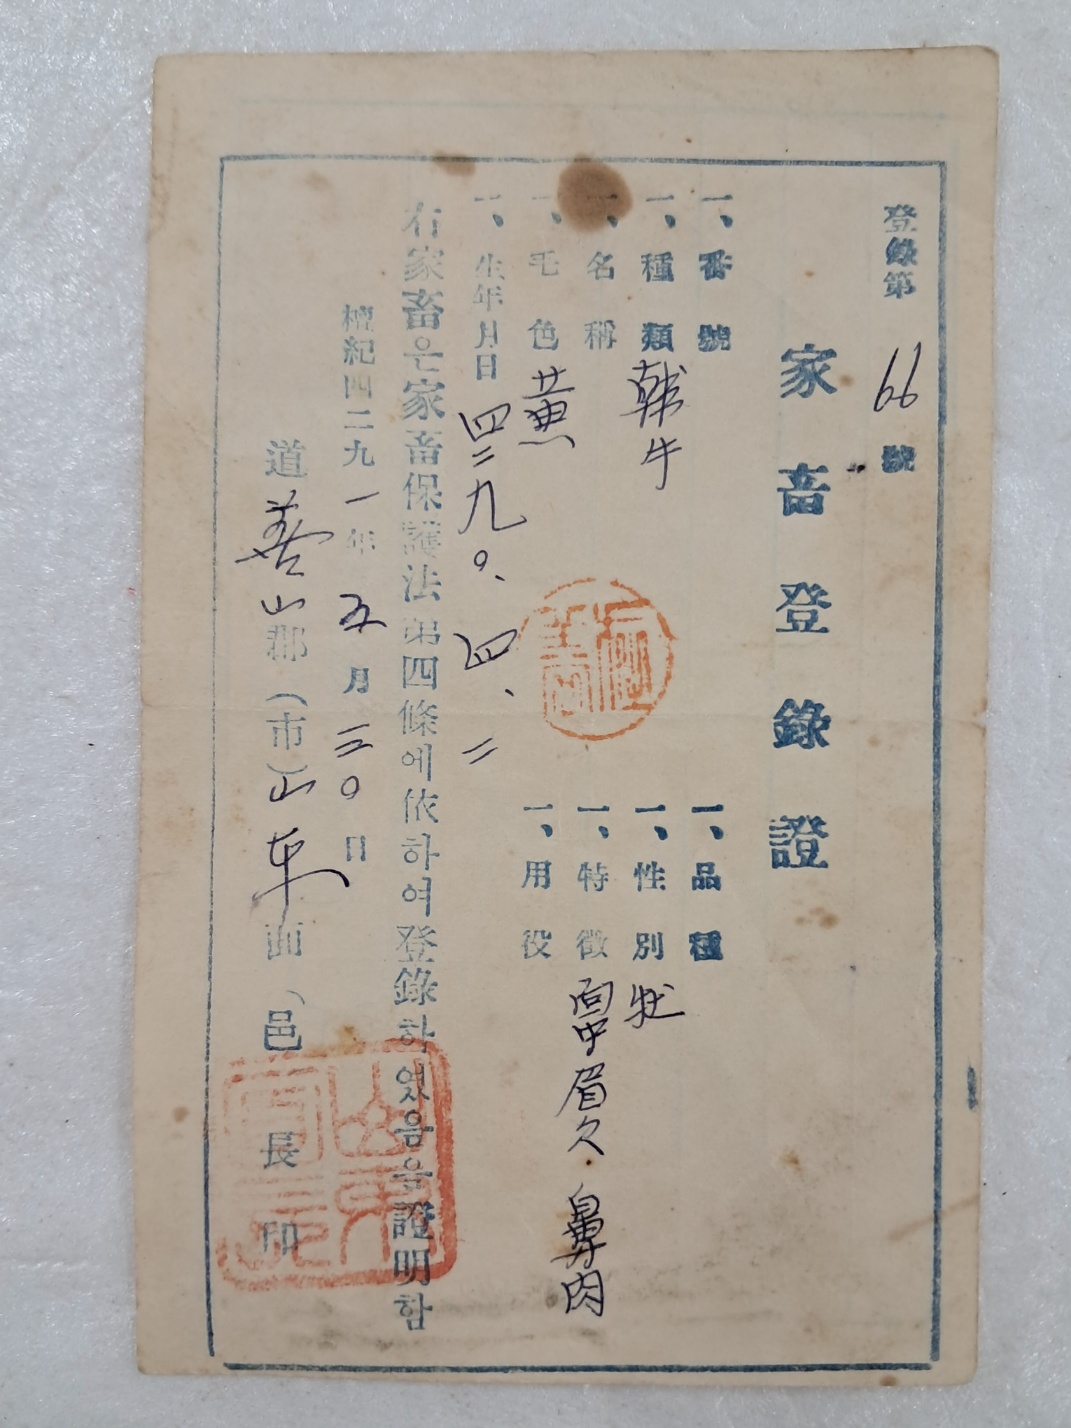 登錄第 66 號
家畜登錄證
一、番號
一、種類 韓牛
一、名稱
一、毛色 黃
一、生年月日 四二九〇、四、二
一、品種
一、性別 牝
一、特徵 面中眉久. 鼻肉
一、用役
右家畜은家畜保護法第四條에依하여登錄하였음을證明함
檀紀四二九一年 五月 三〇日
道 善山郡(市)山東面(邑長印